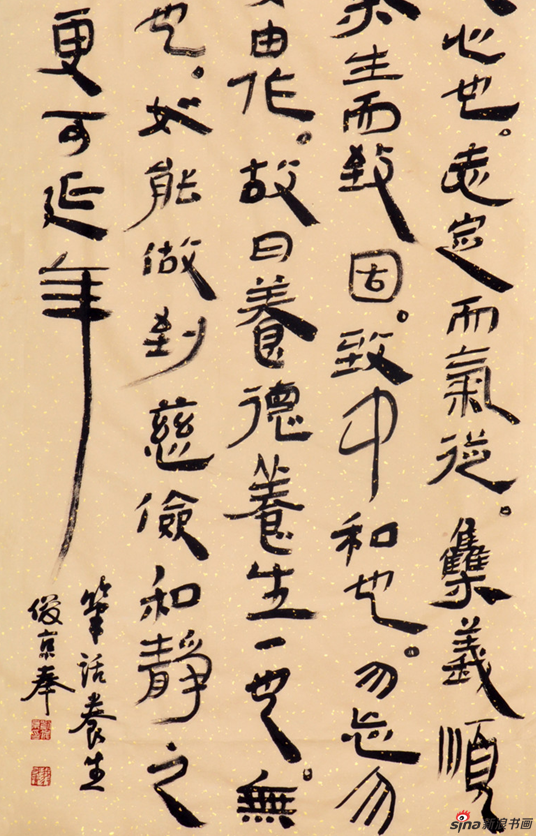 心也。志定而氣從。集義順
生而固。致中和也。勿忘勿
由作。故曰養德養生一也。無
也。如能做到慈儉和靜之
更可延年
筆話養生
俊京奉
sina新浪书画